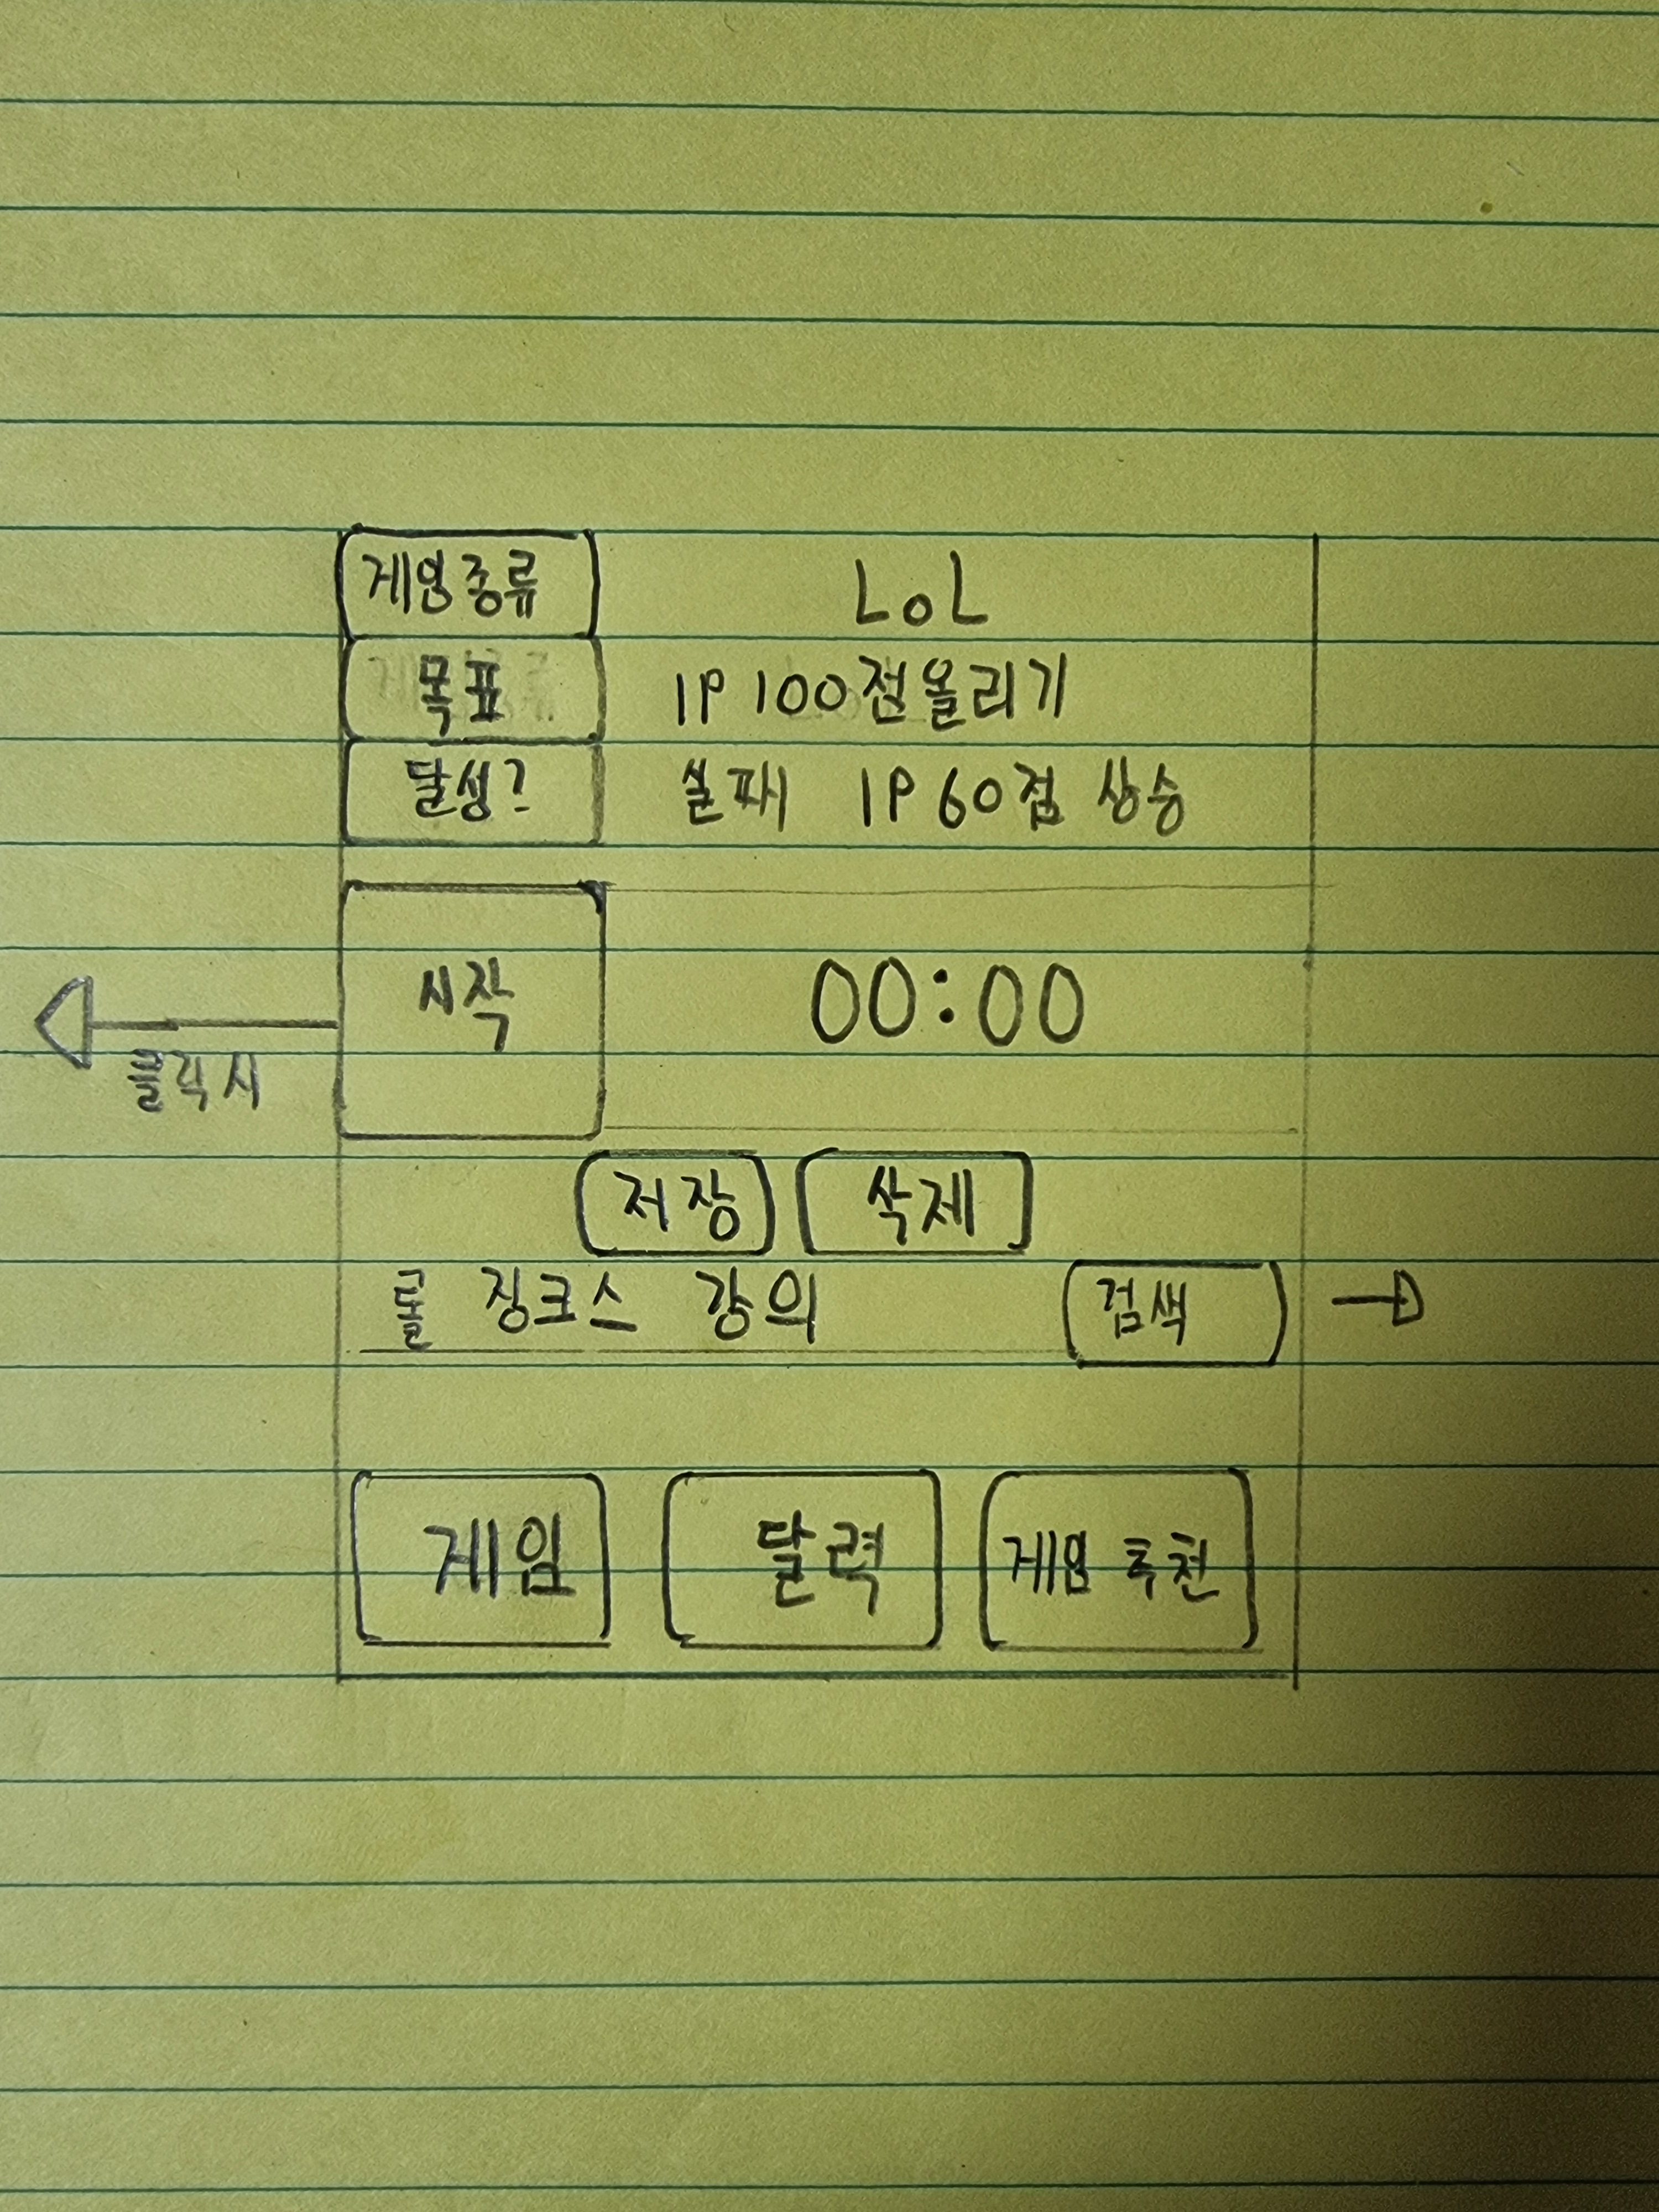 게임종류 LoL
목표 IP 100점올리기
달성? 실패 IP 60점 상승
시작 00:00
클릭시
저장 삭제
롤 징크스 강의 검색
게임 달력 게임 추천